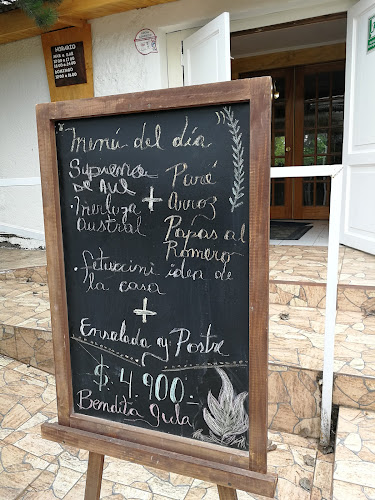 HORARIO
Menú del día
Suprema
de Ave
+
Puré
· Merluza
Austral
Arroz
Papas al
Romero
· Fetuccini idea de
la casa
+
Ensalada y Postre
$ 4.900.-
Bendita Gula